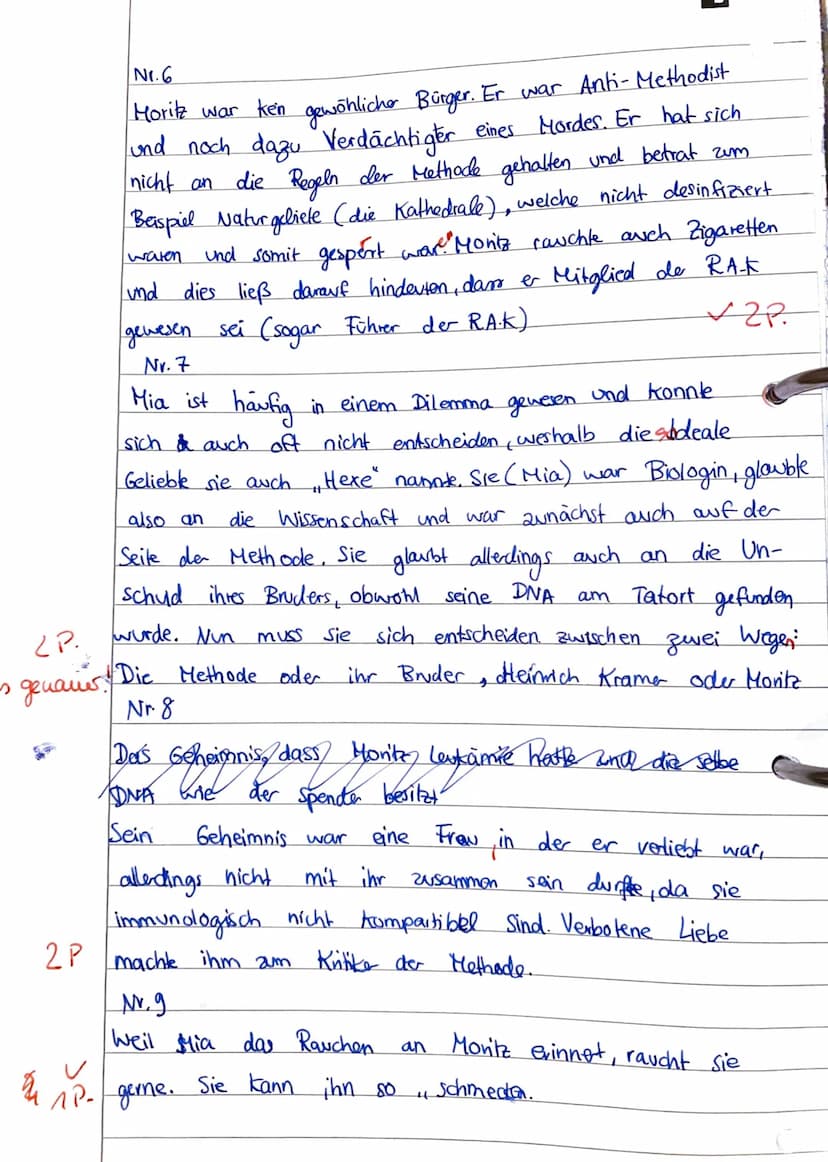 Nr. 6
Moritz war ken gewöhlicher Bürger. Er war Anti-Methodist
und noch dazu Verdächtigter eines Mordes. Er hat sich
nicht an die Regeln der Methode gehalten und betrat zum
Beispiel Naturgebiete (die Kathedrale), welche nicht desinfiziert
waren und somit gesperrt war. Moritz rauchte auch Zigaretten
und dies ließ darauf hindeuten, dass er Mitglied der RAK
gewesen sei (sogar Führer der RAK)
✓ 2P.
Nr. 7
Mia ist häufig in einem Dilemma gewesen und konnte
sich auch oft nicht entscheiden, weshalb die ideale
Geliebte sie auch „Hexe" nannte. Sie (Mia) war Biologin, glaubte
also an die Wissenschaft und war zunächst auch auf der
Seite der Methode. Sie glaubt allerdings auch an die Un-
schud ihres Bruders, obwohl seine DNA am Tatort gefunden
wurde. Nun muss sie sich entscheiden zwischen zwei Wegen:
2P.
Die Methode oder ihr Bruder, Heinrich Kramer oder Moritz
genauer!
Nr. 8
Das Geheimnis, dass Moritz Leukämie hatte und die selbe
DNA wie der Spender besitzt
Sein Geheimnis war eine Frau, in der er verliebt war,
allerdings nicht mit ihr zusammen sein durfte, da sie
immunologisch nicht kompatibel sind. Verbotene Liebe
machte ihm zum Kritiker der Methode.
2P
Nr. 9
Weil Mia das Rauchen an Moritz erinnet, raucht sie
gerne. Sie kann ihn so „schmecken.
✓ 1P.